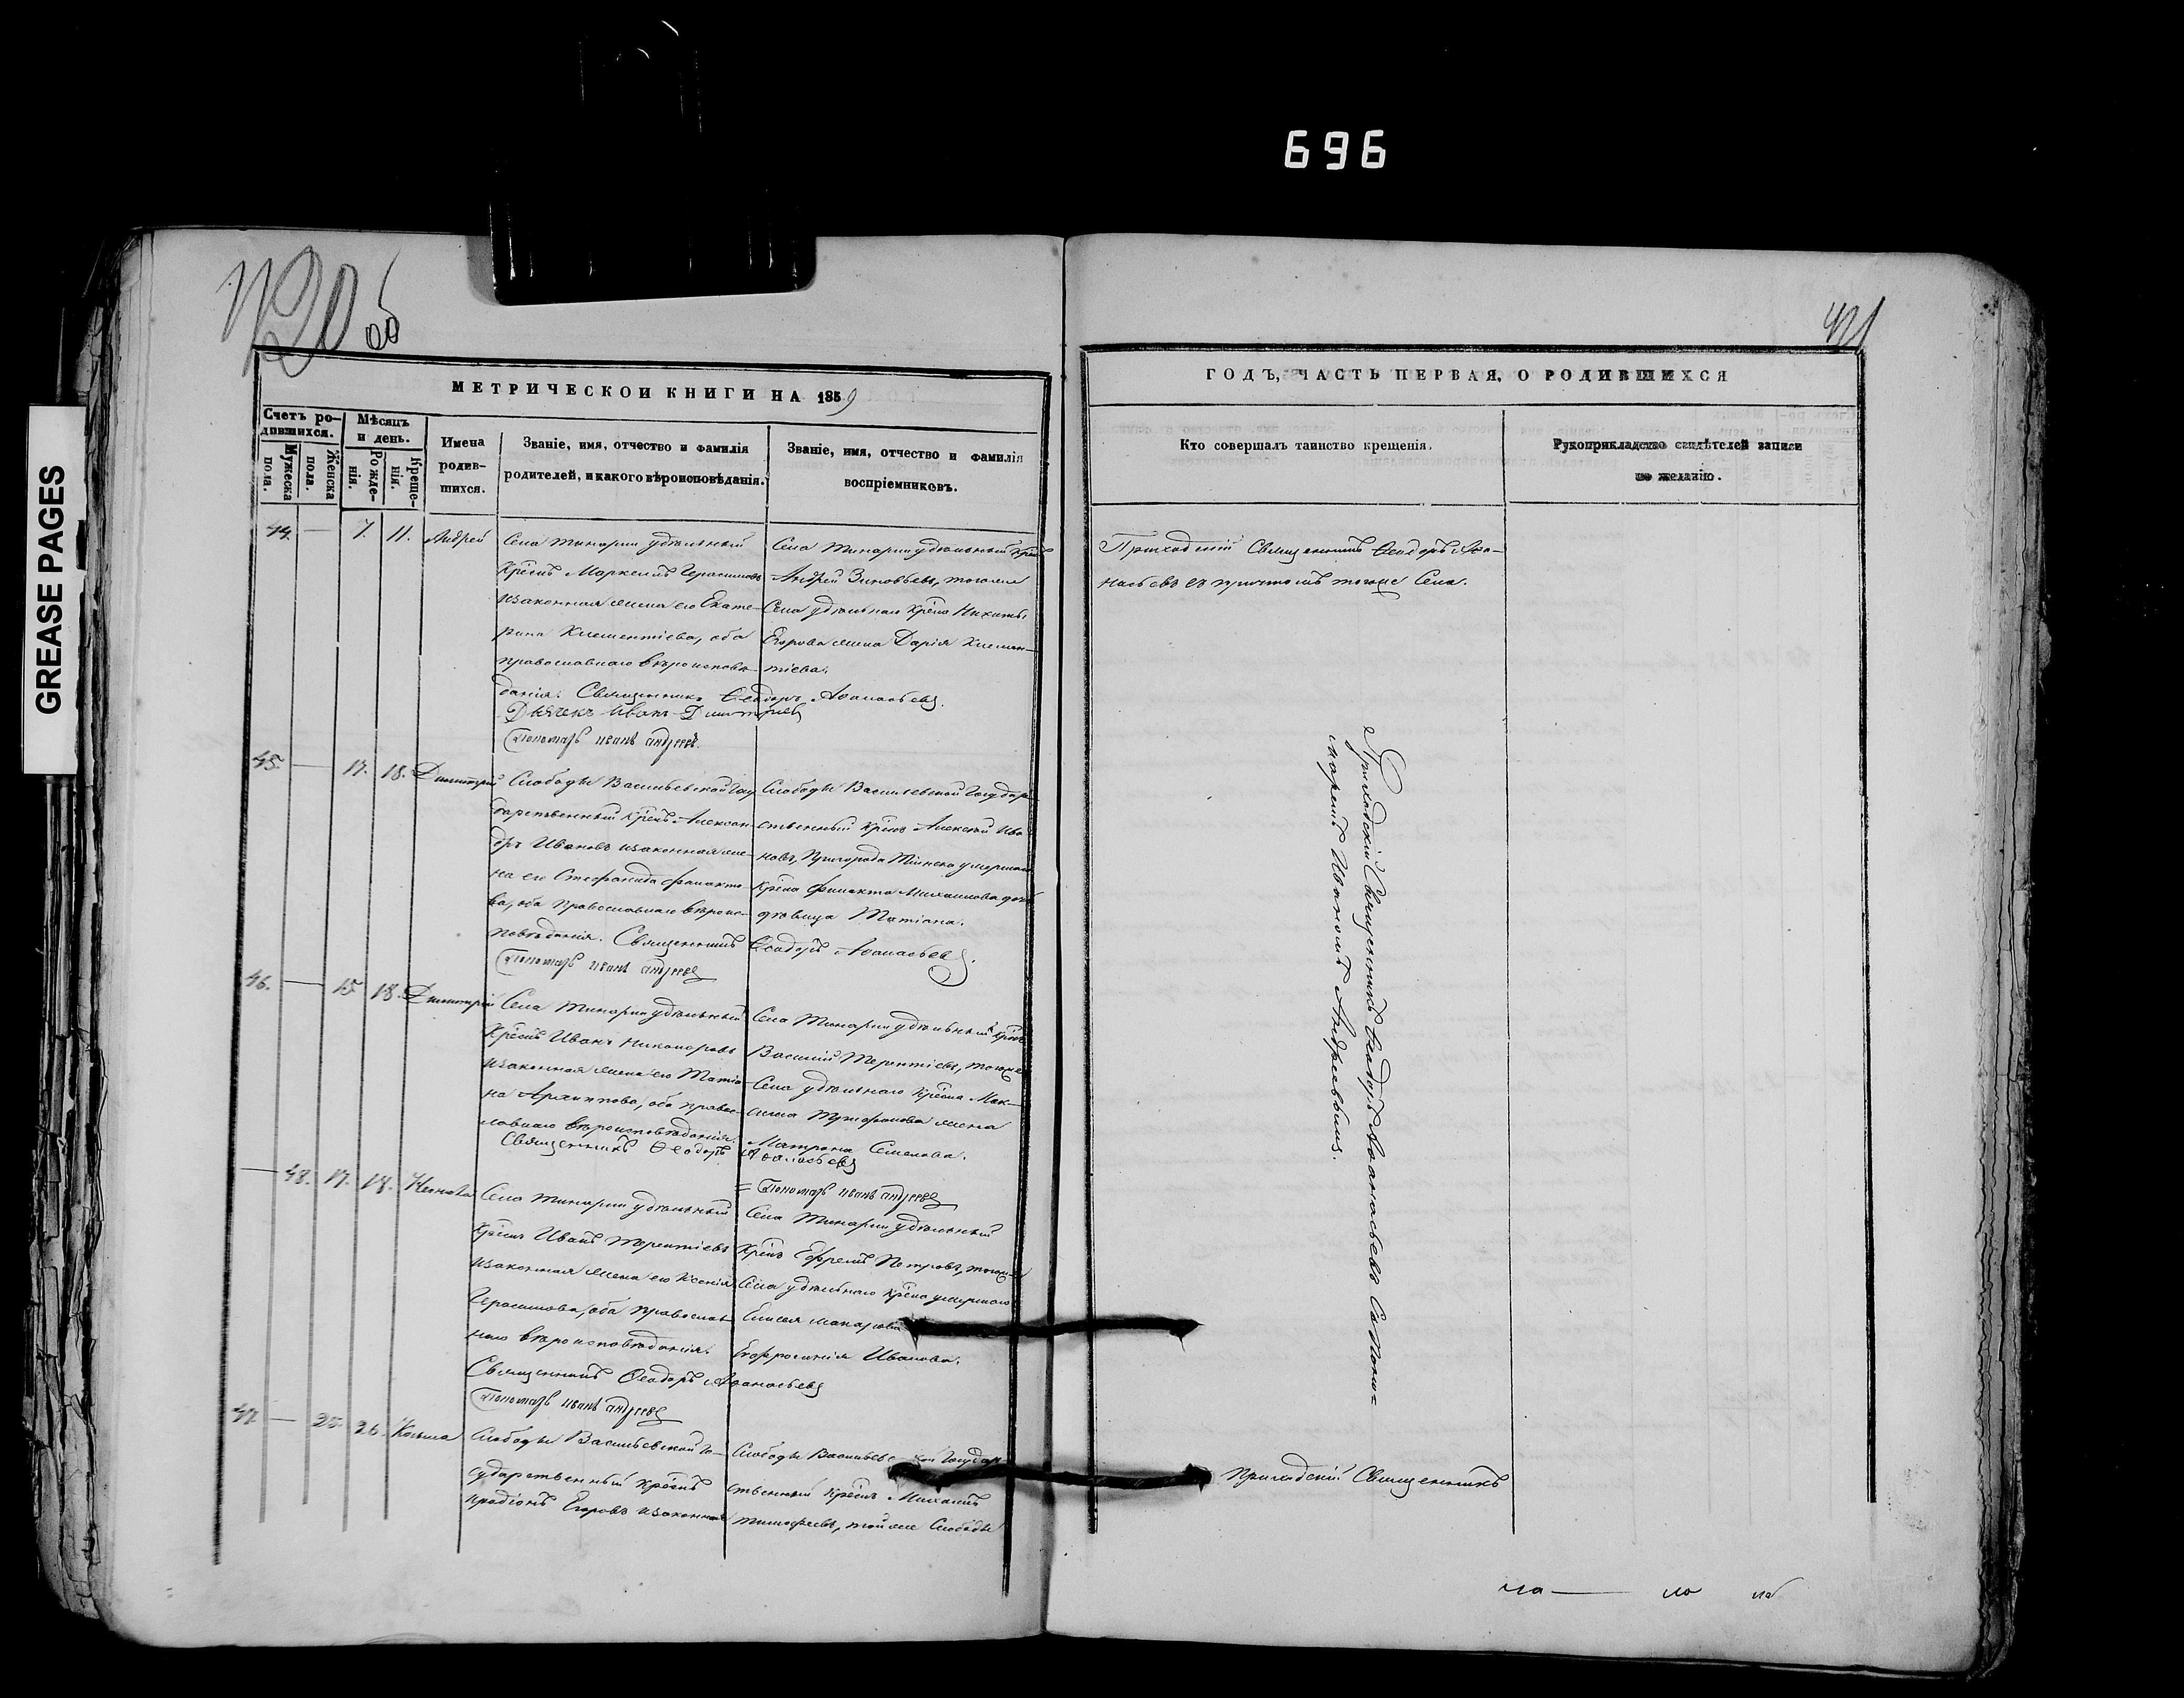 696
GREASE PAGES
420 об
421
МЕТРИЧЕСКОЙ КНИГИ НА 1859
ГОДЪ, ЧАСТЬ ПЕРВАЯ, О РОДИВШИХСЯ
Счетъ родившихся.
Мужеска пола.
Женска пола.
Мѣсяцъ и день.
Рожденія.
Крещенія.
Имена родившихся.
Званіе, имя, отчество и фамилія
родителей, и какого вѣроисповѣданія.
Званіе, имя, отчество и фамилія
воспріемниковъ.
Кто совершалъ таинство крещенія.
Рукоприкладство свидѣтелей записи
по желанію.
44. — 7. 11. Андрей
Села удѣльный
крѣснъ Маркелъ Герасимовъ
и законная жена его Екате-
рина Климентіева, оба
православнаго вѣроисповѣ-
данія. Священникъ Ѳеодоръ Аѳанасьевъ.
Дьячекъ Иванъ Димитріевъ
Пономарь Иванъ Андреевъ.
Села удѣльный крѣснъ
Андрей Зиновьевъ, тогоже
Села удѣльнаго крѣсна Никиты
Егорова жена Дарія Климен-
тіева.
Приходскій Священникъ Ѳеодоръ Аѳа-
насьевъ съ причтомъ тогоже Села.
45. — 17. 18. Димитрій
Слободы Васильевской Госу
дарственный крѣснъ Алексан
дръ Ивановъ и законная же-
на его Стефанида
ва, оба Православнаго вѣроис-
повѣданія. Священникъ Ѳеодоръ Аѳанасьевъ.
Пономарь Иванъ Андреевъ
Слободы Васильевской Государ
ственный крѣснъ Алексѣй Ива
новъ, Пригорода умершаго
крѣсна Михаилова дочь
дѣвица Татіана.
46. — 15 18. Димитрій
Села удѣльный
крѣснъ Иванъ Никаноровъ
и законная жена его Татіа-
на Архиппова, оба правос-
лавнаго вѣроисповѣданія.
Священникъ Ѳеодоръ Аѳанасьевъ
Села удѣльный крѣснъ
Василій Терентіевъ, тогоже
Села удѣльнаго крѣсна Мак-
сима жена
Матрона Семенова.
= Пономарь Иванъ Андреевъ
— 48. 17. 18.
Села удѣльный
крѣснъ Иванъ Терентіевъ
и законная жена его Ксенія
Герасимова, оба Православ
наго вѣроисповѣданія.
Священникъ Ѳеодоръ Аѳанасьевъ
Пономарь Иванъ Андреевъ
Села удѣльный
крѣснъ Ефремъ Петровъ, тогоже
Села удѣльнаго крѣсна умершаго
Елисея Макарова
Евфросинія Иванова.
Приходскій Священникъ Ѳеодоръ Аѳанасьевъ съ Поно=
маремъ Иваномъ Андреевымъ.
47. — 25. 26. Косьма
Слободы Васильевской Го-
сударственный крѣснъ
Иродіонъ Егоровъ и законная
Слободы Васильевской Государ
ственный крѣснъ Михаилъ
Тимофеевъ, той же Слободы
Приходскій Священникъ